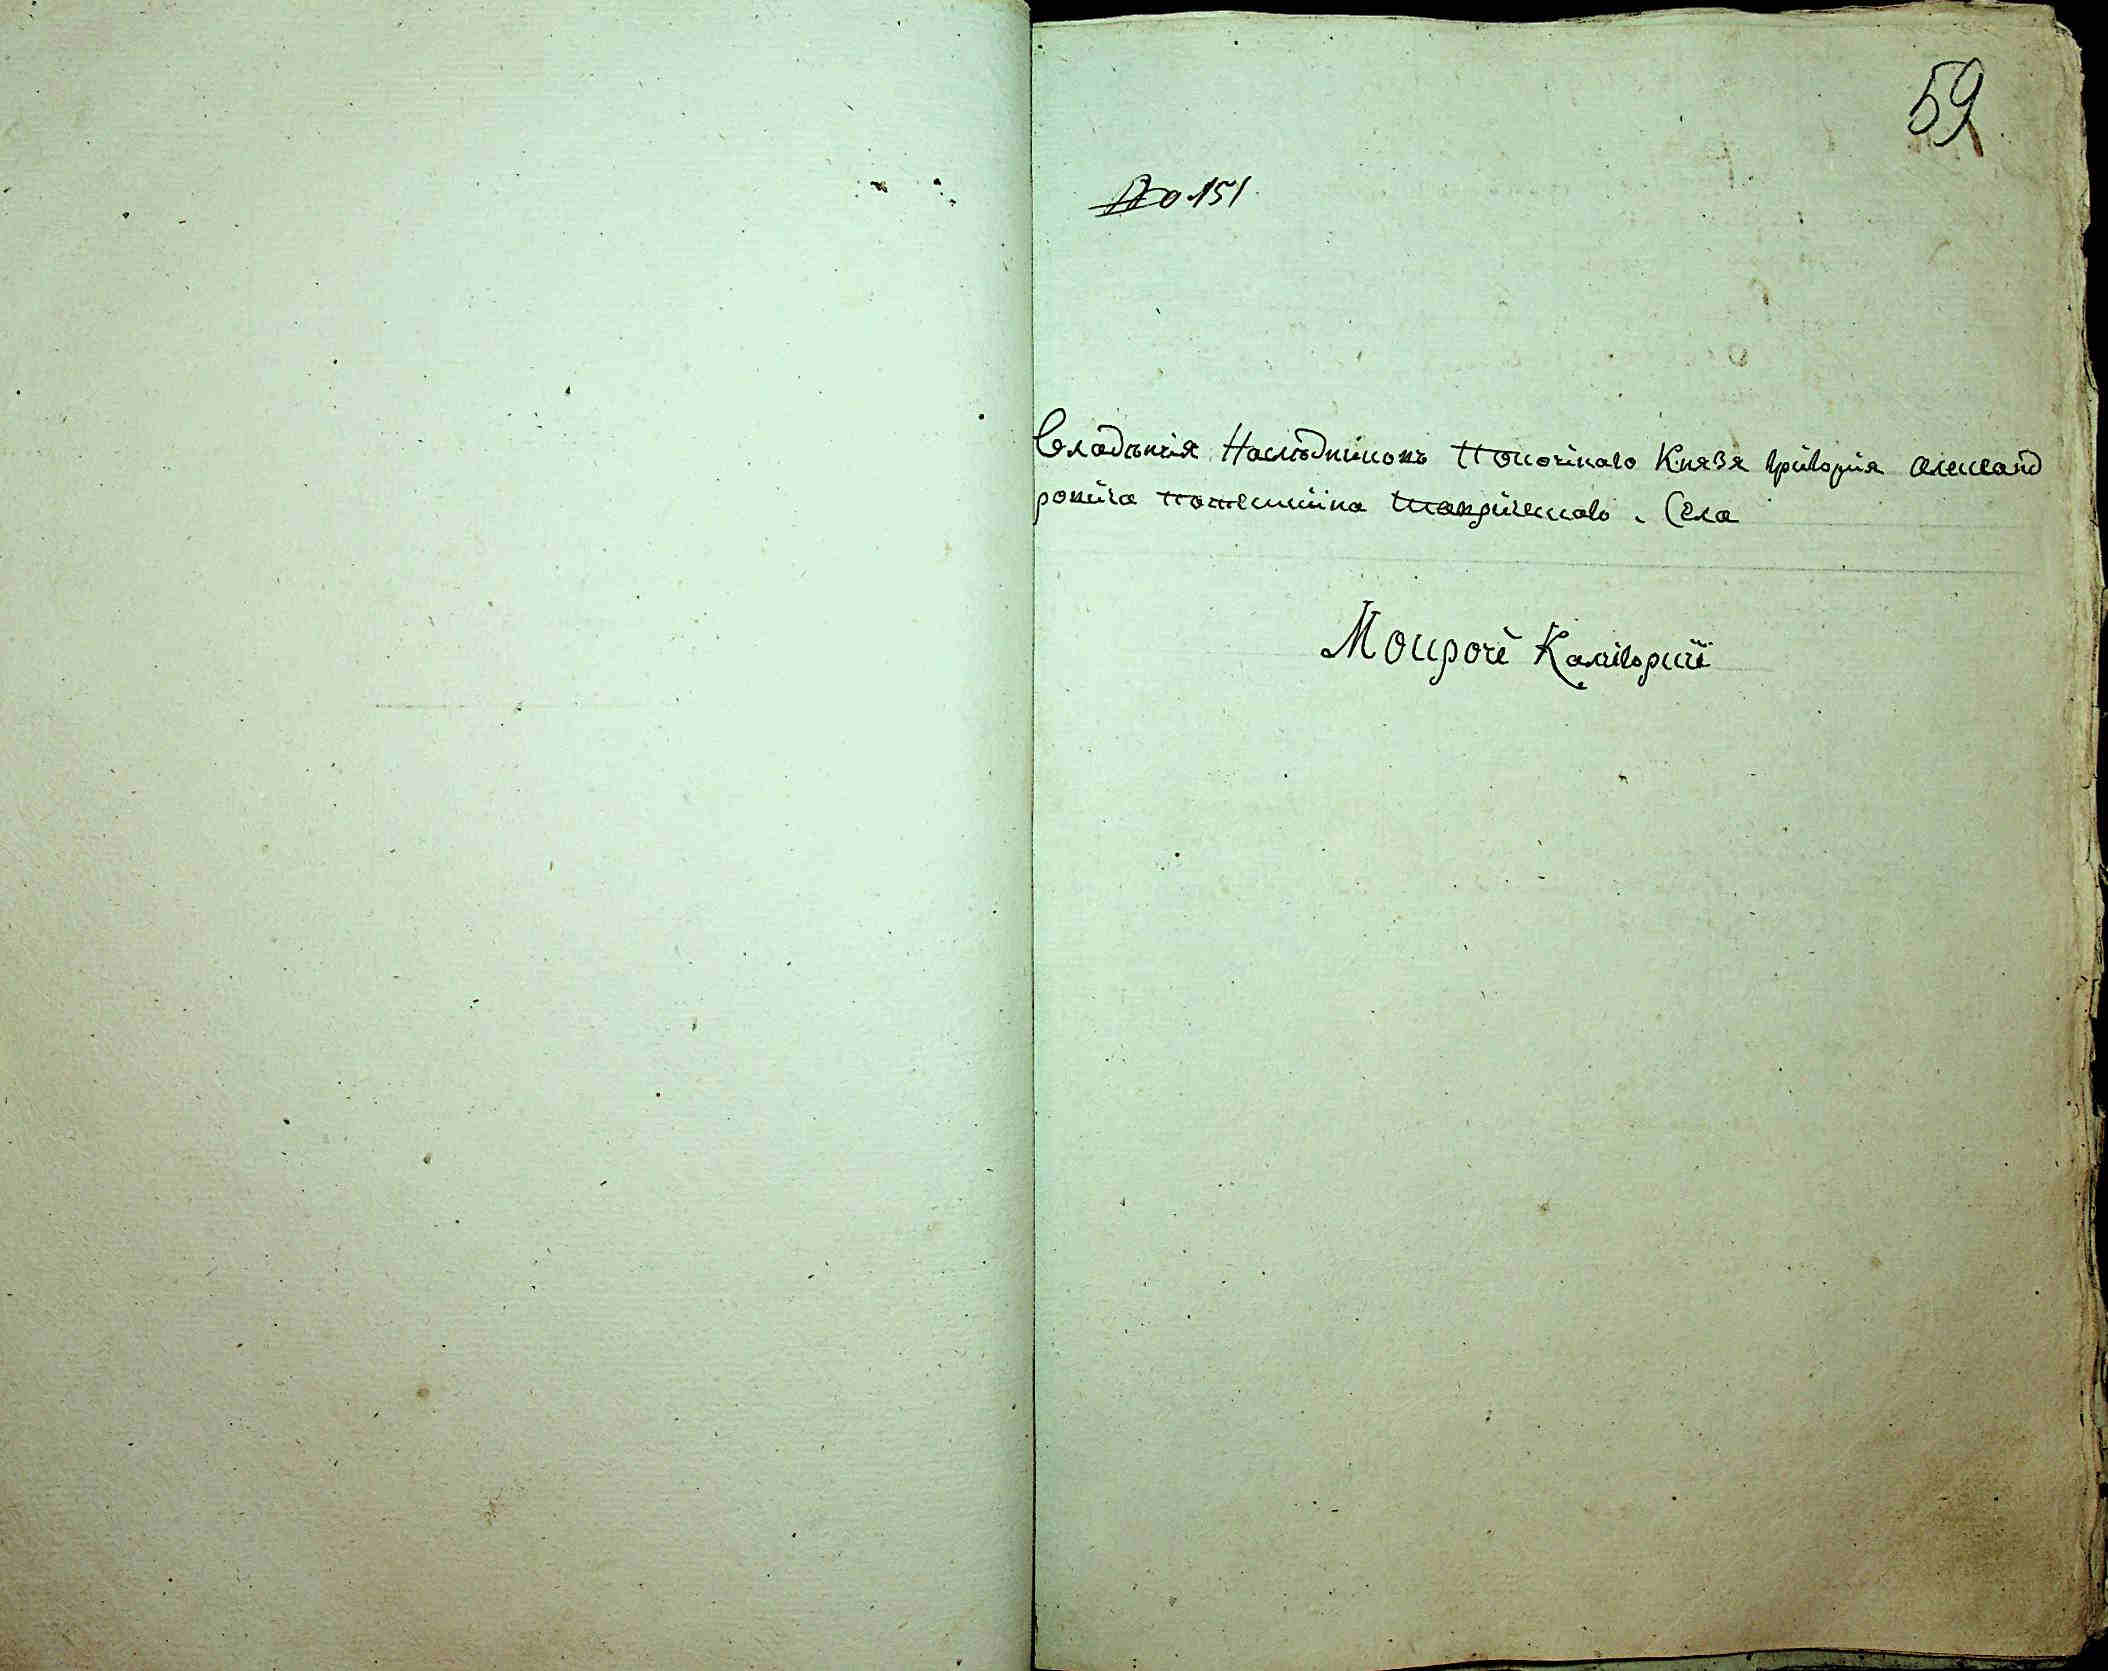 59
№ 151
Владѣния Наслѣдниковъ Покоинаго Князя григория александ
ровича потемкина таврическаго. Села
Мокрой Калигорки